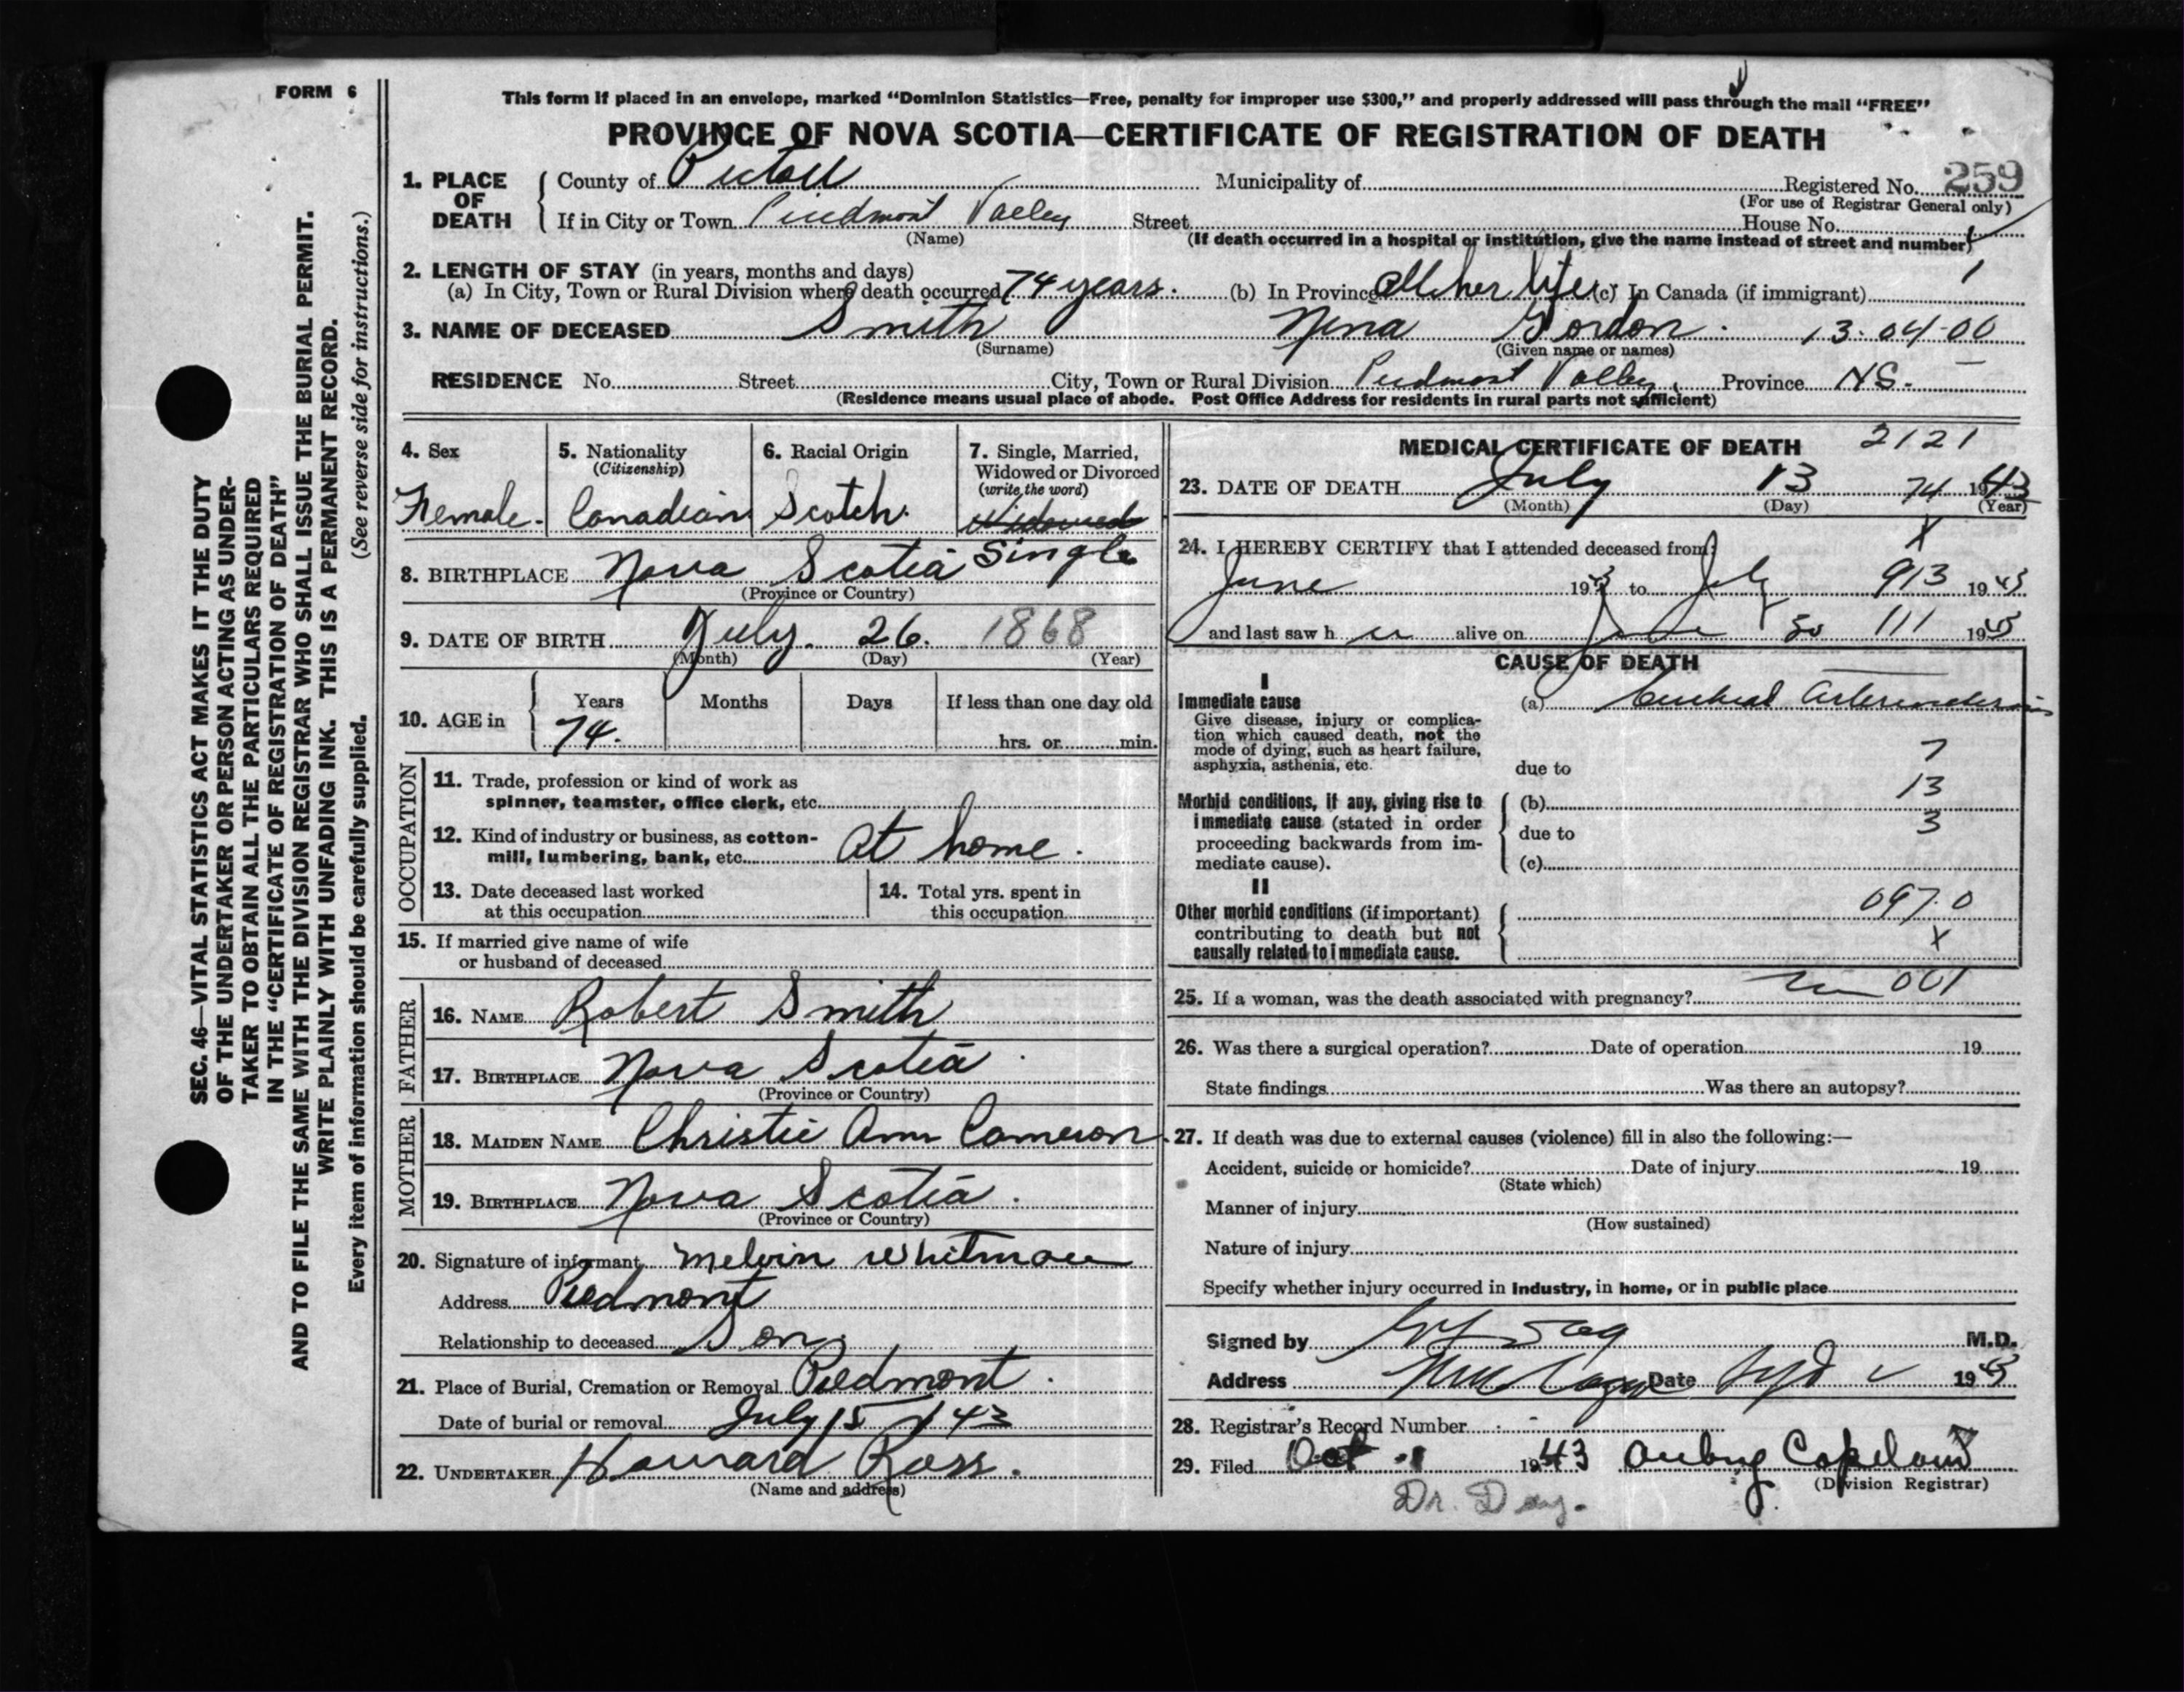 FORM 6
This form if placed in an envelope, marked "Dominion Statistics—Free, penalty for improper use $300," and properly addressed will pass through the mail "FREE"
PROVINCE OF NOVA SCOTIA—CERTIFICATE OF REGISTRATION OF DEATH
1. PLACE OF DEATH
County of Pictou Municipality of Registered No. 259
(For use of Registrar General only)
If in City or Town Piedmont Valley Street House No.
(Name) (If death occurred in a hospital or institution, give the name instead of street and number)
2. LENGTH OF STAY (in years, months and days)
(a) In City, Town or Rural Division where death occurred 74 years. (b) In Province All her life (c) In Canada (if immigrant) 1
3. NAME OF DECEASED Smith Nena Gordon. 13-04-00
(Surname) (Given name or names)
RESIDENCE No. Street City, Town or Rural Division Piedmont Valley, Province N.S.
(Residence means usual place of abode. Post Office Address for residents in rural parts not sufficient)
4. Sex
Female.
5. Nationality
(Citizenship)
Canadian
6. Racial Origin
Scotch.
7. Single, Married,
Widowed or Divorced
(write the word)
Widowed
Single
8. BIRTHPLACE Nova Scotia
(Province or Country)
9. DATE OF BIRTH July. 26. 1868
(Month) (Day) (Year)
10. AGE in
Years Months Days If less than one day old
74. hrs. or min.
OCCUPATION
11. Trade, profession or kind of work as
spinner, teamster, office clerk, etc.
12. Kind of industry or business, as cotton-
mill, lumbering, bank, etc. At home.
13. Date deceased last worked
at this occupation
14. Total yrs. spent in
this occupation
15. If married give name of wife
or husband of deceased
FATHER
16. NAME Robert Smith
17. BIRTHPLACE Nova Scotia
(Province or Country)
MOTHER
18. MAIDEN NAME Christie Ann Cameron.
19. BIRTHPLACE Nova Scotia.
(Province or Country)
20. Signature of informant Melvin Whitman
Address Piedmont
Relationship to deceased Son.
21. Place of Burial, Cremation or Removal Piedmont.
Date of burial or removal July 15 / 43
22. UNDERTAKER Howard Ross.
(Name and address)
MEDICAL CERTIFICATE OF DEATH 2121
23. DATE OF DEATH July 13 74 1943
(Month) (Day) (Year)
X
24. I HEREBY CERTIFY that I attended deceased from:
June 1943 to July 913 1943
and last saw h er alive on June 30 111 1943
CAUSE OF DEATH
I
Immediate cause
Give disease, injury or complica-
tion which caused death, not the
mode of dying, such as heart failure,
asphyxia, asthenia, etc.
(a) Cerebral Arteriosclerosis
7
due to
13
Morbid conditions, if any, giving rise to
immediate cause (stated in order
proceeding backwards from im-
mediate cause).
(b)
due to 3
(c)
II
Other morbid conditions (if important)
contributing to death but not
causally related to immediate cause.
097.0
X
25. If a woman, was the death associated with pregnancy? No 001
26. Was there a surgical operation? Date of operation 19
State findings Was there an autopsy?
27. If death was due to external causes (violence) fill in also the following:—
Accident, suicide or homicide? Date of injury 19
(State which)
Manner of injury
(How sustained)
Nature of injury
Specify whether injury occurred in Industry, in home, or in public place
Signed by M.D.
Address Date 1943
28. Registrar's Record Number
29. Filed Oct 1 1943 Aubrey Copeland
(Division Registrar)
Dr. Day.
SEC. 46—VITAL STATISTICS ACT MAKES IT THE DUTY
OF THE UNDERTAKER OR PERSON ACTING AS UNDER-
TAKER TO OBTAIN ALL THE PARTICULARS REQUIRED
IN THE "CERTIFICATE OF REGISTRATION OF DEATH"
AND TO FILE THE SAME WITH THE DIVISION REGISTRAR WHO SHALL ISSUE THE BURIAL PERMIT.
WRITE PLAINLY WITH UNFADING INK. THIS IS A PERMANENT RECORD.
Every item of information should be carefully supplied. (See reverse side for instructions.)